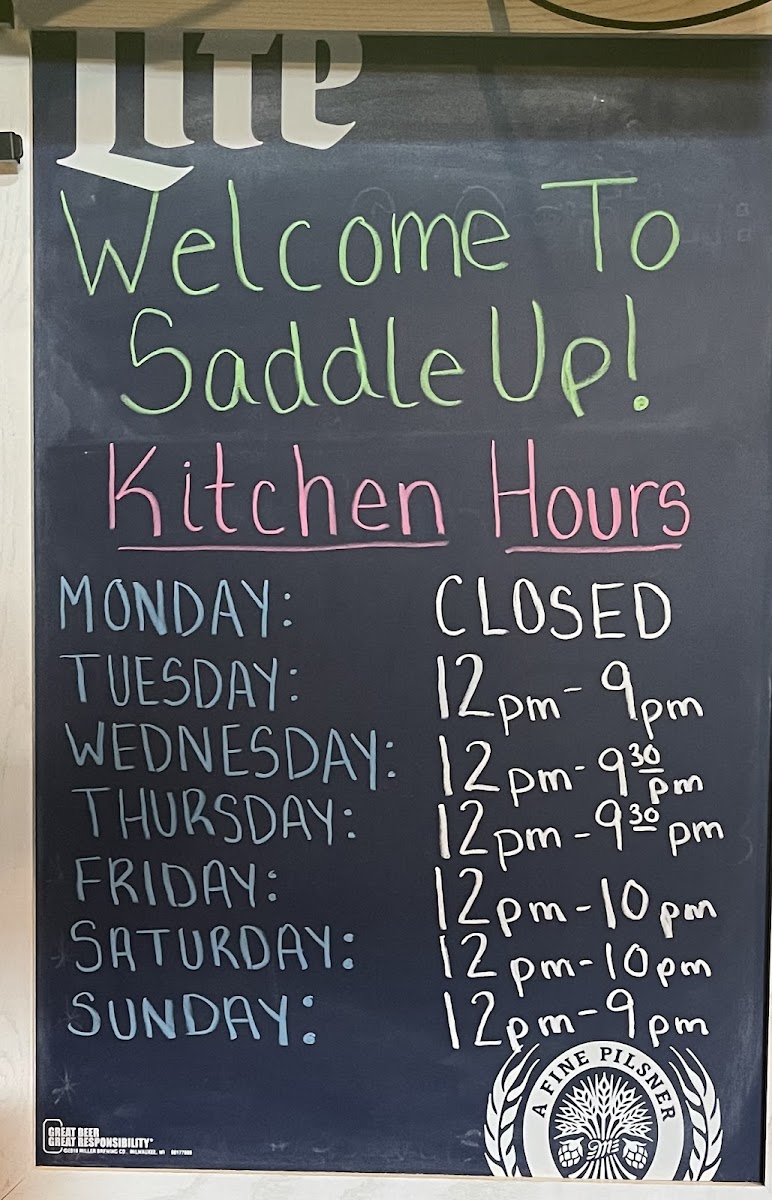 Lite
Welcome To
Saddle Up!
Kitchen Hours
MONDAY: CLOSED
TUESDAY: 12pm - 9pm
WEDNESDAY: 12pm - 9 30 pm
THURSDAY: 12pm - 9 30 pm
FRIDAY: 12pm - 10pm
SATURDAY: 12pm - 10pm
SUNDAY: 12pm - 9pm
A FINE PILSNER
GREAT BEER
GREAT RESPONSIBILITY
MILLER BREWING CO., MILWAUKEE, WI